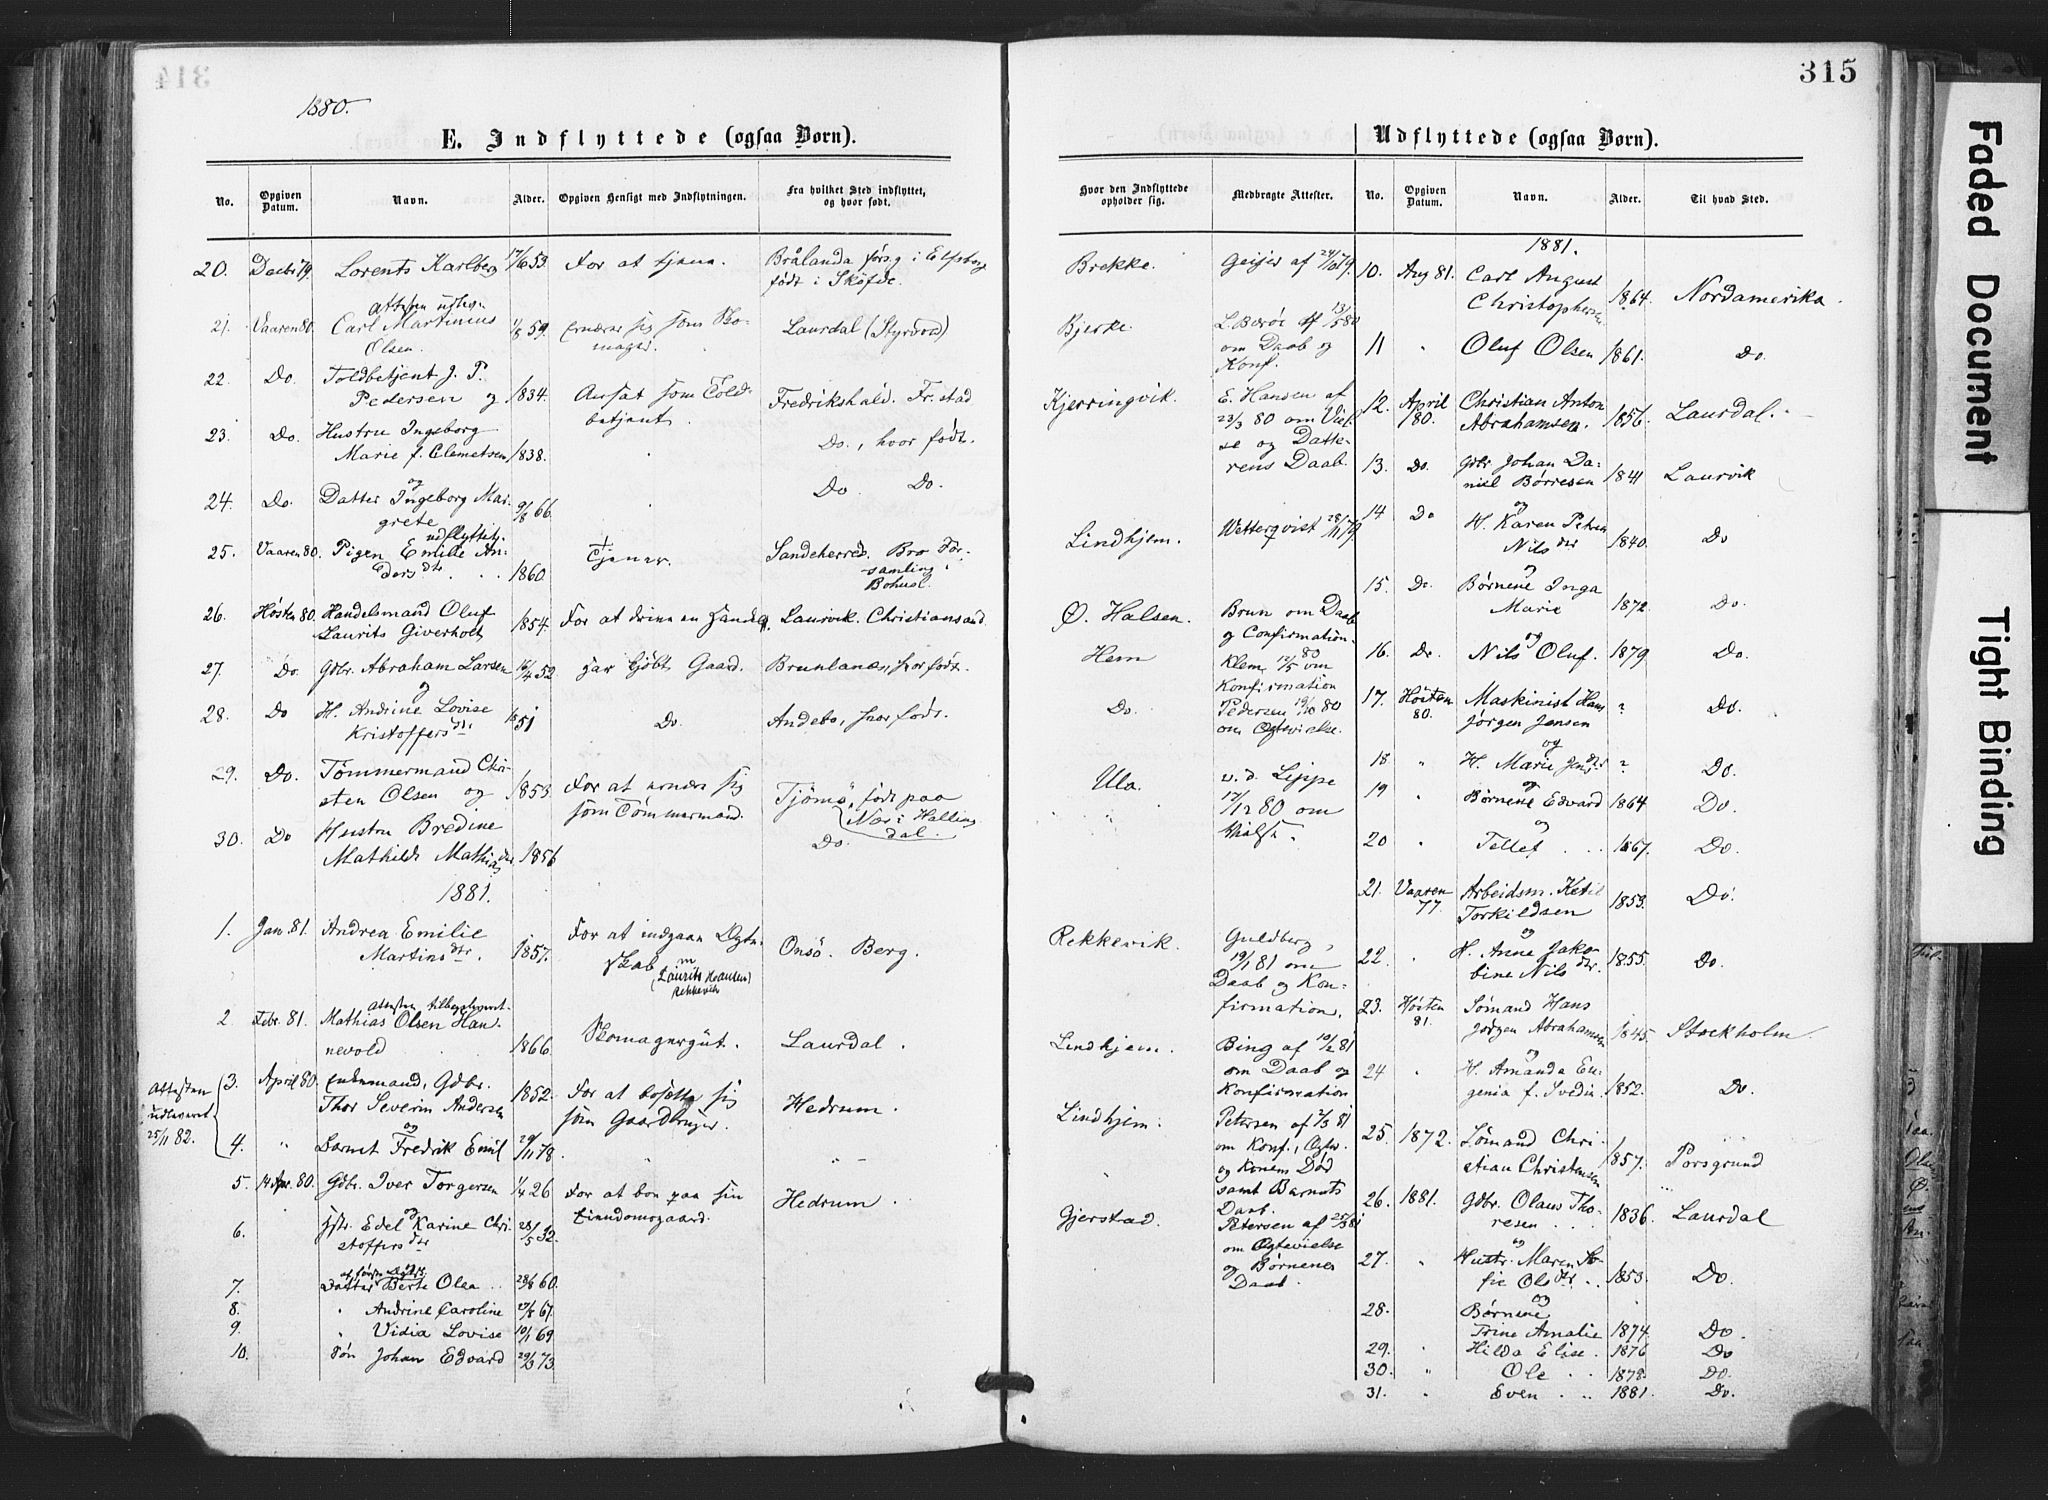 314
1880.
E. Indflyttede (ogsaa Børn).
No. Opgiven Datum. Navn. Alder. Opgiven Hensigt med Indflytningen. Fra hvilket Sted indflyttet, og hvor født.
20. Decbr 79. Lorents Karlberg 17/6 53. For at tjene. Brålanda førs.g i Elfsborg
født i Sköfde.
Attesten udleg.
21. Vaaren 80. Carl Martinius 1/8 59. ernærer sig som Sko-
Olsen. mager. Laurdal (Styrvold)
22. Do. Toldbetjent J. P.
Pedersen og 1834. Ansat som Told-
betjent. Fredrikshald. Fr.stad
23. Do. Hustru Ingeborg
Marie f. Clemetsen 1838. Do., hvor født.
og
24. Do. Datter Ingeborg Mar-
grete 9/8 66. Do. Do.
udflyttet
25. Vaaren 80. Pigen Emilie An-
ders dtr . . . 1860. Tjener. Sandeherred. Bro For-
samling i
Bohusl.
26. Høsten 80. Handelsmand Oluf
Laurits Giverholt 1854. For at drive en Handel. Laurvik. Christiansand.
27. Do. Gdbr. Abraham Larsen 16/4 52. Har kjøbt Gaard. Brunlanæs, hvor født.
og
28. Do H. Andrine Lovise
Kristoffers dtr. 1851 Do. Andebo, hvor født.
29. Do. Tömmermand Chri-
sten Olsen og 1853. For at ernære sig
som Tömmermand. Tjömö, født paa
Næs i Hallings
dal.
30. Do Hustru Bredine
Mathilde Mathias dtr 1856 Do.
1881.
1. Jan. 81. Andrea Emilie
Martins dtr. 1857. For at indgaa Egte-
skab m
(Laurits Hansen)
Rekkevik Onsö. Berg.
Attesten tilbageleveret
2 Febr. 81. Mathias Olsen Han-
nevold 1866. Skomagergut. Laurdal.
Attesten
udleveret
25/11 82.
3. April 80. Enkemand, Gdbr.
Thor Severin Andersen 1852. For at bosætte sig
som Gaardbruger. Hedrum.
og
4. " Barnet Fredrik Emil 29/11 78. " " -
5. 14 Apr. 80. Gdbr. Iver Torgersen 1/4 26 For at bo paa sin
Eiendomsgaard. Hedrum.
og
6. Hstr. Edel Karine Chri-
stoffers dtr 28/5 32.
7. Datter Berte Olea . . 28/8 60.
8. " Andrine Caroline 27/8 67.
9. " Vidia Lovise 10/1 69
10. Søn Johan Edvard 29/3 73.
315
Udflyttede (ogsaa Børn).
Hvor den Indflyttede opholder sig. Medbragte Attester. No. Opgiven Datum. Navn. Alder. Til hvad Sted.
1881.
Brekke. Geijer af 24/10 79. 10. Aug 81. Carl August
Christophersen 1864. Nordamerika.
Bjerke. L. Borøe af 13/5 80
om Daab og
Konf. 11 " Oluf Olsen 1861. Do.
Kjerringvik. E. Hansen af
23/3 80 om Viel-
se og Datte-
rens Daab. 12. April
80. Christian Anton
Abrahamsen. 1856. Laurdal.
13. Do. Gdbr Johan Da-
niel Børresen 1841 Laurvik
og
Lindhjem. Wetterqvist 28/11 79 14 Do H. Karen Petrea
Nils dtr 1840. Do
og
15. Do. Børnene Inga
Marie 1872. Do.
Ø. Halsen. Brun om Daab
og Confirmation.
og
Hem Klem 12/5 80 om
Konfirmation 16. Do. Nils Oluf. 1879 Do.
Do. Pedersen 19/10 80
om Egtevielse. 17. Høsten
80. Maskinist Hans
Jørgen Jensen ? Do.
og
18 " H. Marie Jens dtr ? Do.
og
Ula. v. d. Lippe
17/12 80 om
Vielse. 19 " Børnene Edvard 1864 Do.
og
20 " Tellef . . . 1867. Do.
21. Vaaren
77. Arbeidsm. Ketil
Torkildsen 1853. Do.
og
Rekkevik. Guldberg,
19/1 81 om
Daab og Kon-
firmation. 22. " H. Anne Jako-
bine Nils dtr. 1855. Do.
23. Høsten
81. Sømand Hans
Jørgen Abrahamsen 1845. Stockholm
og
Lindhjem. Bing af 10/2 81
om Daab og
Konfirmation 24 " H. Amanda Eu-
genia f. Svedin. 1852. Do.
Lindhjem. Petersen af 2/3 81
om Konf., Egtev.
og Konens Død
samt Barnets
Daab. 25. 1872. Sømand Chri-
stian Christensen 1857. Porsgrund
Gjerstad. Petersen af 25/3 81
om Egtevielse
og Børnenes
Daab. 26. 1881. Gdbr. Olaus Tho-
resen . . 1836. Laurdal
og
27. " Hustr. Maren So-
fie Ols dtr. . . 1853. Do.
og
28. " Børnene
Trine Amalie 1874. Do.
29. " Hilda Elise. 1876 Do
30. " Ole . . 1878. Do.
31. " Even . . . 1881. Do.
Faded Document
Tight Binding